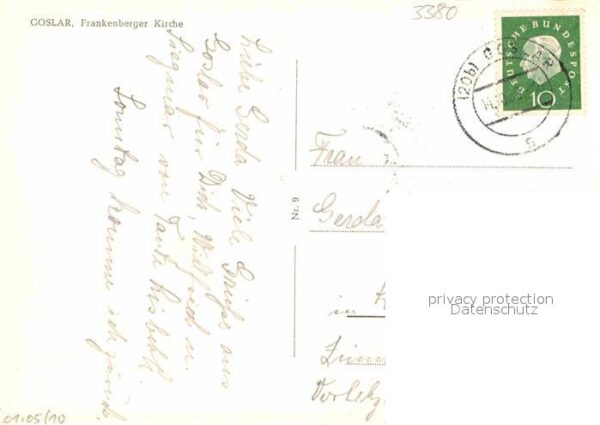 GOSLAR, Frankenberger Kirche
3380
Liebe Gerda Viele Grüße aus
Goslar für Dich, Wilfried u.
Siegmar von Tante Lisbeth.
Sonntag komme ich zurück.
Nr. 9
DEUTSCHE BUNDESPOST
10
(20b) GOSLAR
s
Frau
Gerda
in
privacy protection
Datenschutz
01.05/10